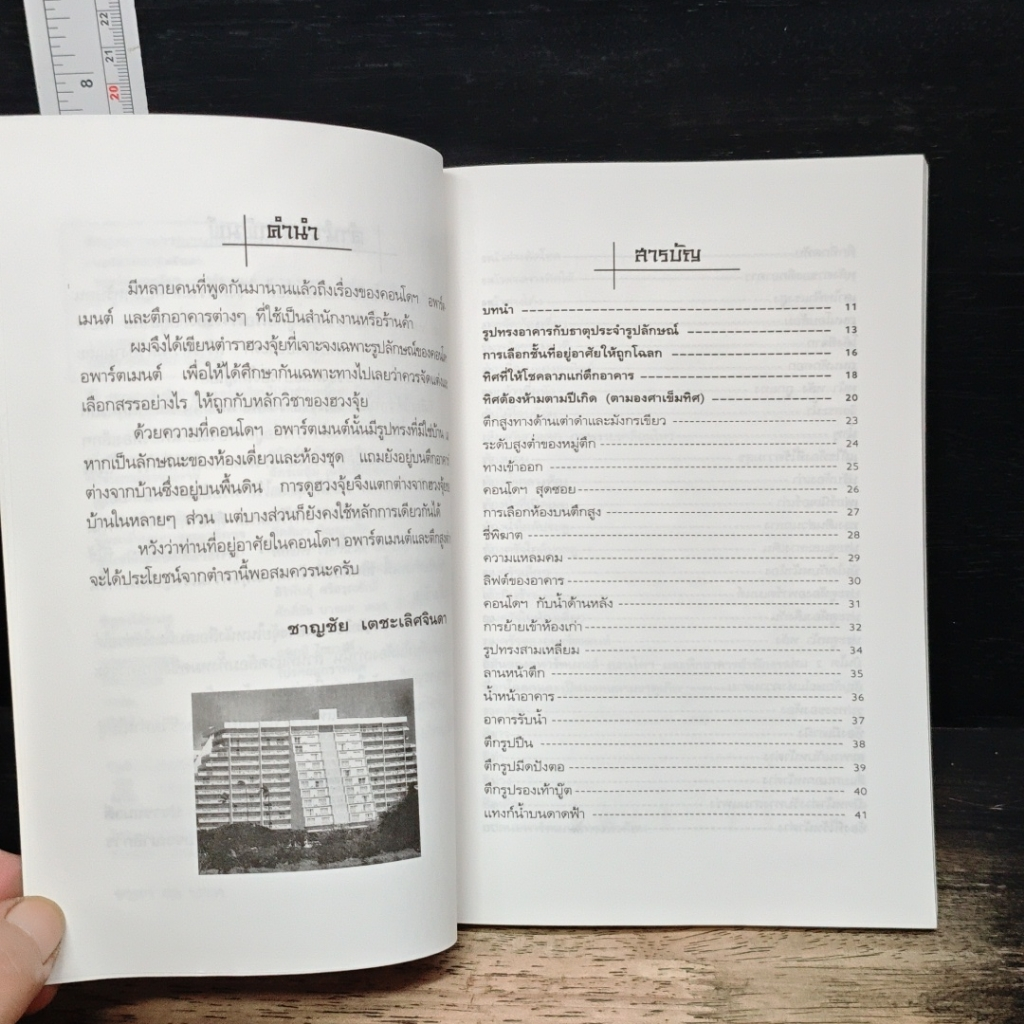 8
22
21
20
คำนำ
มีหลายคนที่พูดกันมานานแล้วถึงเรื่องของคอนโดฯ อพาร์ต
เมนต์ และตึกอาคารต่างๆ ที่ใช้เป็นสำนักงานหรือร้านค้า
ผมจึงได้เขียนตำราฮวงจุ้ยที่เจาะจงเฉพาะรูปลักษณ์ของ
อพาร์ตเมนต์ เพื่อให้ได้ศึกษากันเฉพาะทางไปเลยว่าควร
เลือกสรรอย่างไร ให้ถูกกับหลักวิชาของฮวงจุ้ย
ด้วยความที่คอนโดฯ อพาร์ตเมนต์นั้นมีรูปทรงที่มิใช่บ้าน
หากเป็นลักษณะของห้องเดี่ยวและห้องชุด แถมยังอยู่บนตึก
ต่างจากบ้านซึ่งอยู่บนพื้นดิน การดูฮวงจุ้ยจึงแตกต่างจาก
บ้านในหลายๆ ส่วน แต่บางส่วนก็ยังคงใช้หลักการเดียวกันได้
หวังว่าท่านที่อยู่อาศัยในคอนโดฯ อพาร์ตเมนต์และตึกสูง
จะได้ประโยชน์จากตำรานี้พอสมควรนะครับ
ชาญชัย เตชะเลิศจินดา
สารบัญ
บทนำ 11
รูปทรงอาคารกับธาตุประจำรูปลักษณ์ 13
การเลือกชั้นที่อยู่อาศัยให้ถูกโฉลก 16
ทิศที่ให้โชคลาภแก่ตึกอาคาร 18
ทิศต้องห้ามตามปีเกิด (ตามองศาเข็มทิศ) 20
ตึกสูงทางด้านเต่าดำและมังกรเขียว 23
ระดับสูงต่ำของหมู่ตึก 24
ทางเข้าออก 25
คอนโดฯ สุดซอย 26
การเลือกห้องบนตึกสูง 27
ชี่พิฆาต 28
ความแหลมคม 29
ลิฟต์ของอาคาร 30
คอนโดฯ กับน้ำด้านหลัง 31
การย้ายเข้าห้องเก่า 32
รูปทรงสามเหลี่ยม 34
ลานหน้าตึก 35
น้ำหน้าอาคาร 36
อาคารรับน้ำ 37
ตึกรูปปืน 38
ตึกรูปมีดปังตอ 39
ตึกรูปรองเท้าบู๊ต 40
แทงก์น้ำบนดาดฟ้า 41